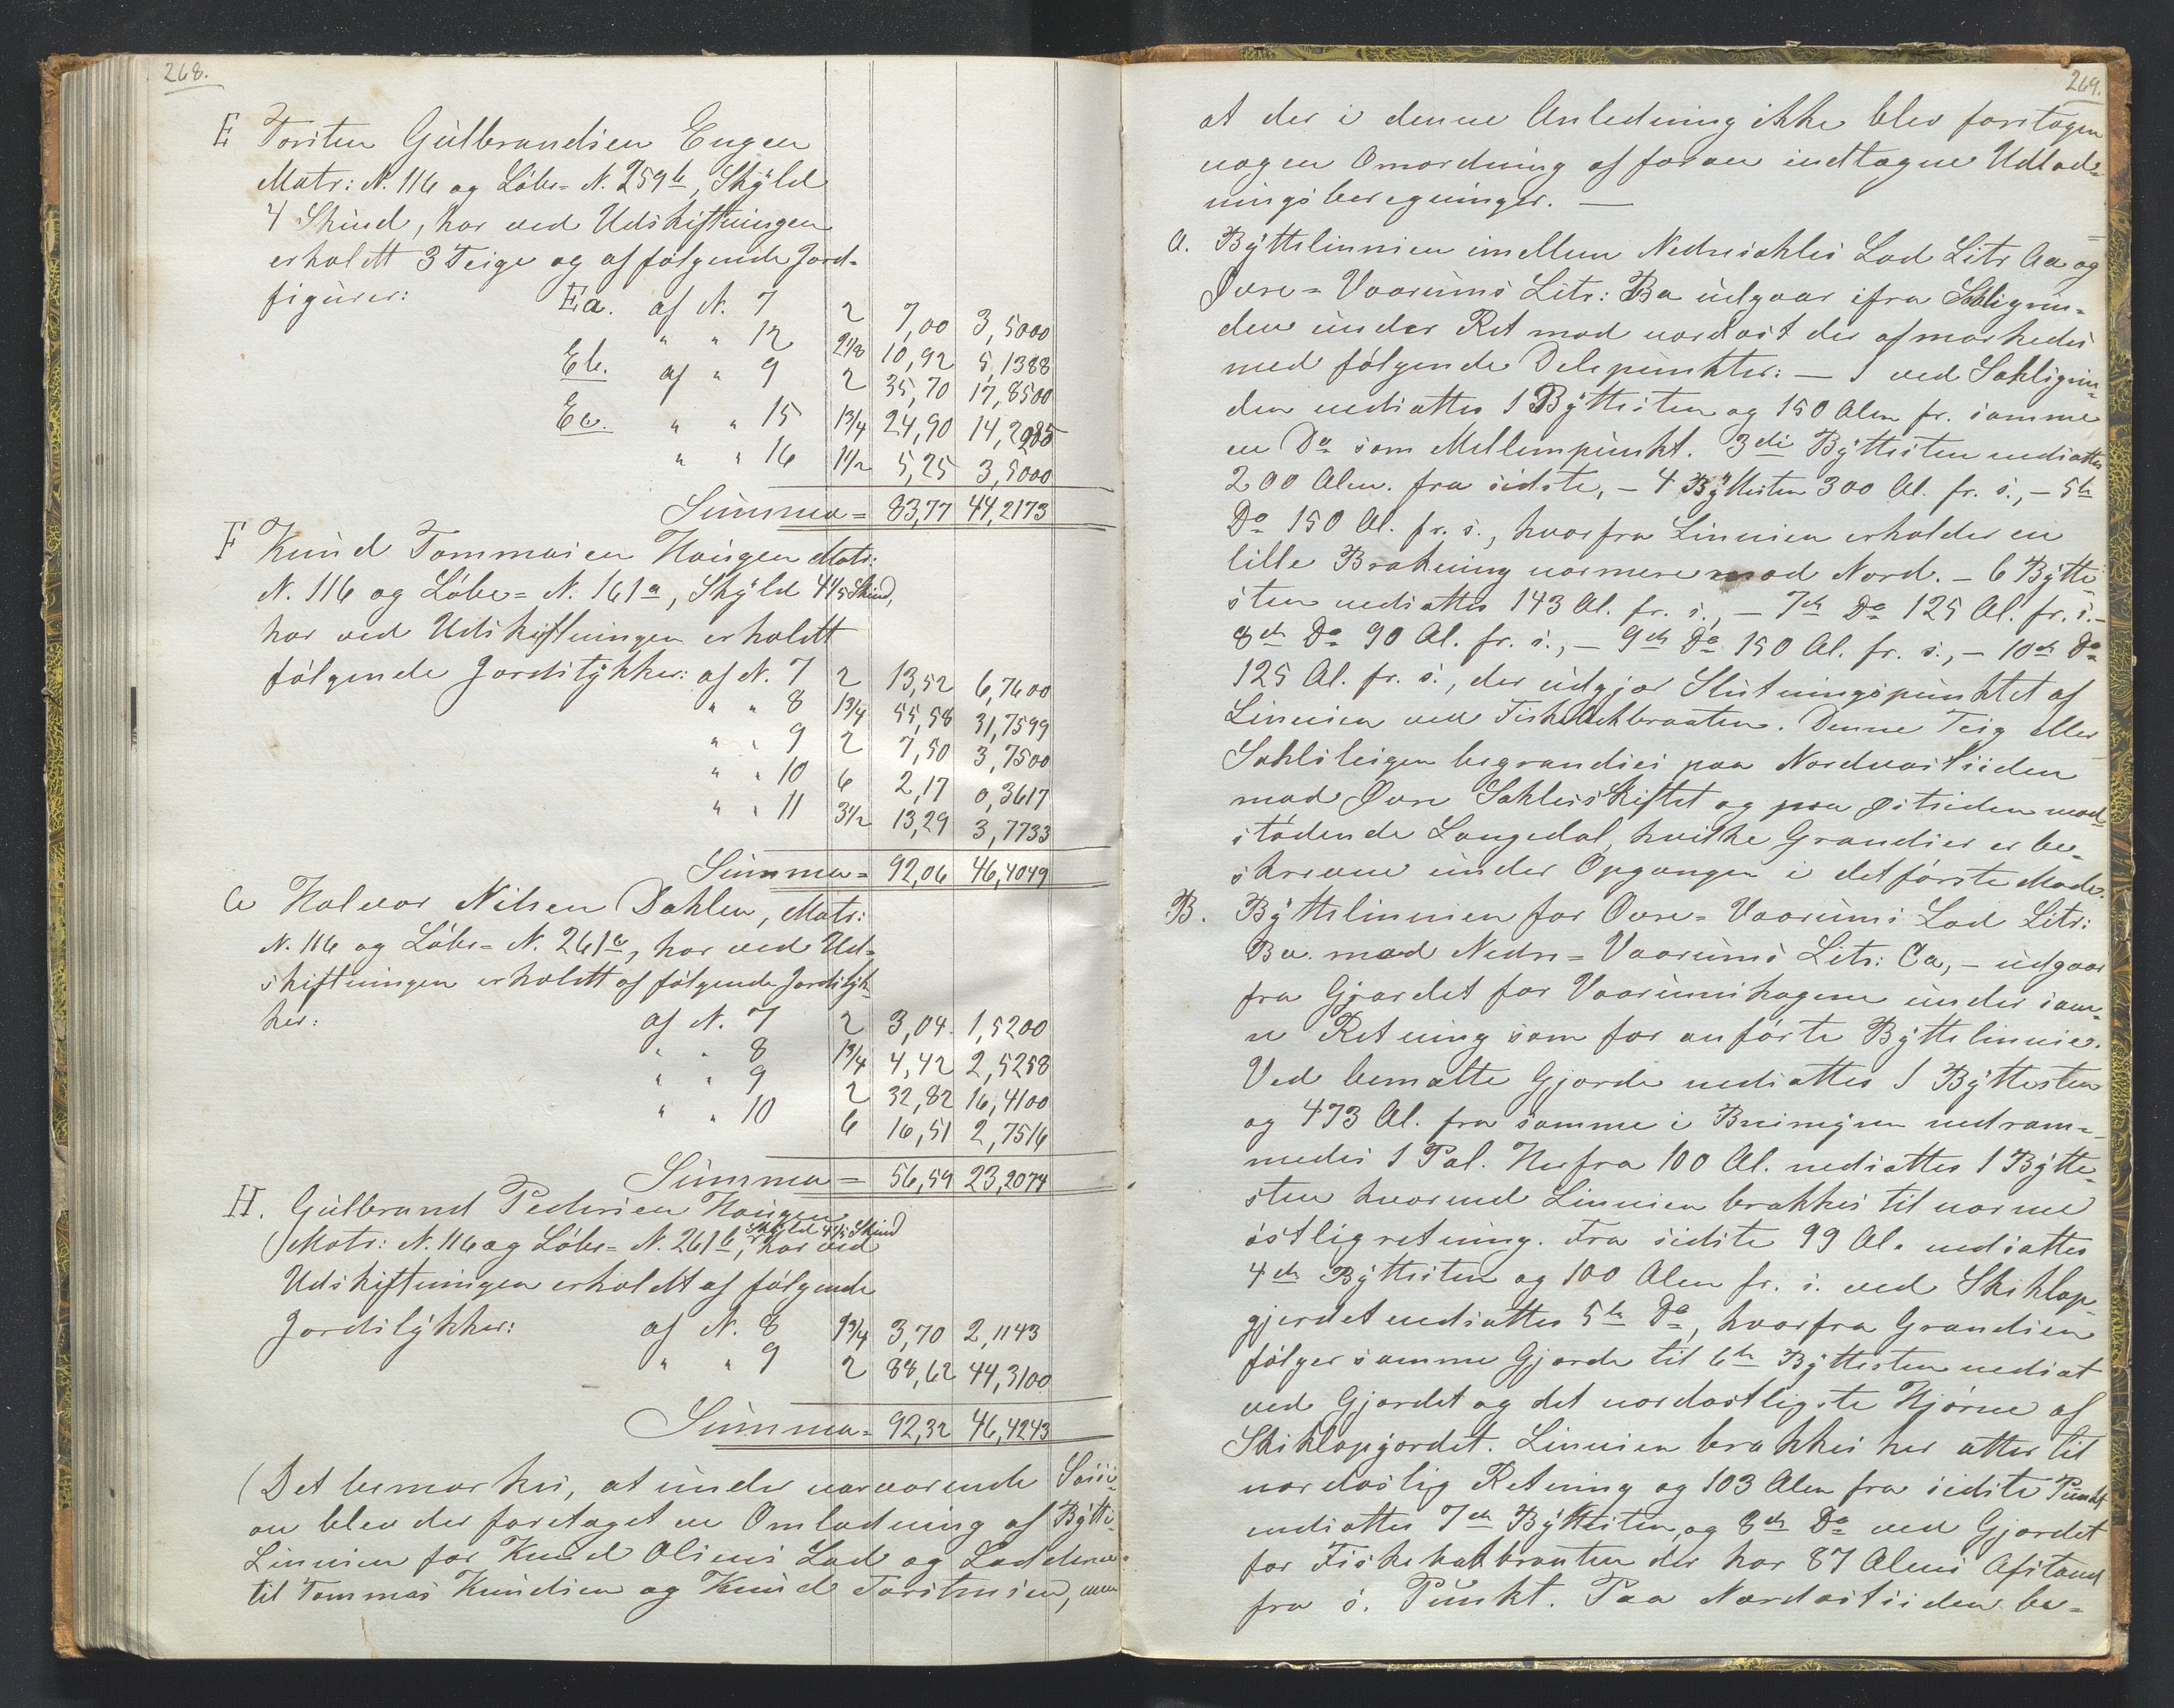 268.
E Torsten Gulbrandsen Engen
Matr: N. 116 og Löbe= N. 259b, Skyld
4 Skind, har ved Udskiftningen
erholdt 3 Teige og af følgende Jord-
figurer: Ea. af N. 7 2 7,00 3,5000
" " 12 2 1/8 10,92 5,1388
Eb. af " 9 2 35,70 17,8500
Ec. " " 15 1 3/4 24,90 14,2285
" " 16 1 1/2 5,25 3,5000
Summa= 83,77 44,2173
F Knud Tommasen Haugen Matr:
N. 116 og Löbe= N. 161a, Skyld 4 1/5 Skind,
har ved Udskiftningen erholdt
følgende Jordstykker: af N. 7 2 13,52 6,7600
" " 8 1 3/4 55,58 31,7599
" " 9 2 7,50 3,7500
" " 10 6 2,17 0,3617
" " 11 3 1/2 13,29 3,7733
Summa= 92,06 46,4049
G Halvor Nilsen Dahlen, Matr:
N. 116 og Löbe= N. 261c, har ved Ud-
skiftningen erholdt af følgende Jordstyk-
ker: af N. 7 2 3,04 1,5200
" " 8 1 3/4 4,42 2,5258
" " 9 2 32,82 16,4100
" " 10 6 16,51 2,7516
Summa= 56,59 23,2074
H. Gulbrand Pedersen Haugen
Skyld 4 1/5 Skind
(Matr: N. 116 og Löbe= N. 261b, har ved
Udskiftningen erholdt af følgende
Jordstykker: af N. 8 1 3/4 3,70 2,1143
" " 9 2 88,62 44,3100
Summa= 92,32 46,4243
(Det bemærkes, at under nærværende Sessi-
on blev der foretaget en Omlodning af Bytte-
Linnien for Knud Olsens Lod og Lodderne
til Tommas Knudsen og Knud Torstensen, men
269.
at der i denne Anledning ikke blev foretagen
nogen Omordning af foran indtagne Udlod=
ningsberegninger. —
A. Byttelinnien imellem Nedresahlis Lod Litr Aa og
Øvre= Vaarums Litr: Ba udgaar ifra Sahligrin-
den under Ret mod nordost der afmærkedes
med følgende Delepunkter: — 1 ved Sahligrin-
den nedsattes 1 Byttesten og 150 Alen fr. samme
en Do som Mellempunkt. 3die Byttesten nedsattes
200 Alen. fra sidste, – 4 Byttesten 300 Al. fr. s., – 5te
Do 150 Al. fr. s., hvorfra Linnien erholder en
lille Brækning nærmere mod Nord. – 6 Bytte-
sten nedsattes 143 Al. fr. s., – 7de Do 125 Al. fr. s. –
8de Do 90 Al. fr. s., – 9de Do 150 Al. fr. s., – 10de Do
125 Al. fr. s., der udgjør Slutningspunktet af
Linnien ved Fiskebækbraaten. Denne Teig eller
Sahlsteigen begrændses paa Nordvestsiden
mod Øvre Sahlesskiftet og paa Østsiden mod-
stødende Langedal, hvilke Grændser er be-
skrevne under Opgangen i det første Møde.
B. Byttelinnien for Øvre= Vaarums Lod Litr:
Ba. mod Nedre= Vaarums Litr: Ca, – udgaar
fra Gjærdet for Vaarumshagene under sam-
e Retning som for anførte Byttelinnie.
Ved bemælte Gjærde nedsattes 1 Byttesten
og 473 Al. fra samme i Brimyren nedram-
medes 1 Pæl. Herfra 100 Al. nedsattes 1 Bytte-
sten hvorved Linnien brækkes til nærme
østlig retning. Fra sidste 99 Al. nedsattes
4de Byttesten og 100 Alen fr. s. ved Skiklop-
gjerdet nedsattes 5te Do, hvorfra Grændsen
følger samme Gjærde til 6te Byttesten nedsat
ved Gjærdet og det nordostligste Hjørne af
Skiklopgjærdet. Linnien brækkes her atter til
nordostlig Retning og 103 Alen fra sidste Punkt
nedsattes 7de Byttesten og 8de Do ved Gjærdet
for Fiskebækbraaten der har 87 Alens Afstand
fra s. Punkt. Paa Nordostsiden be=